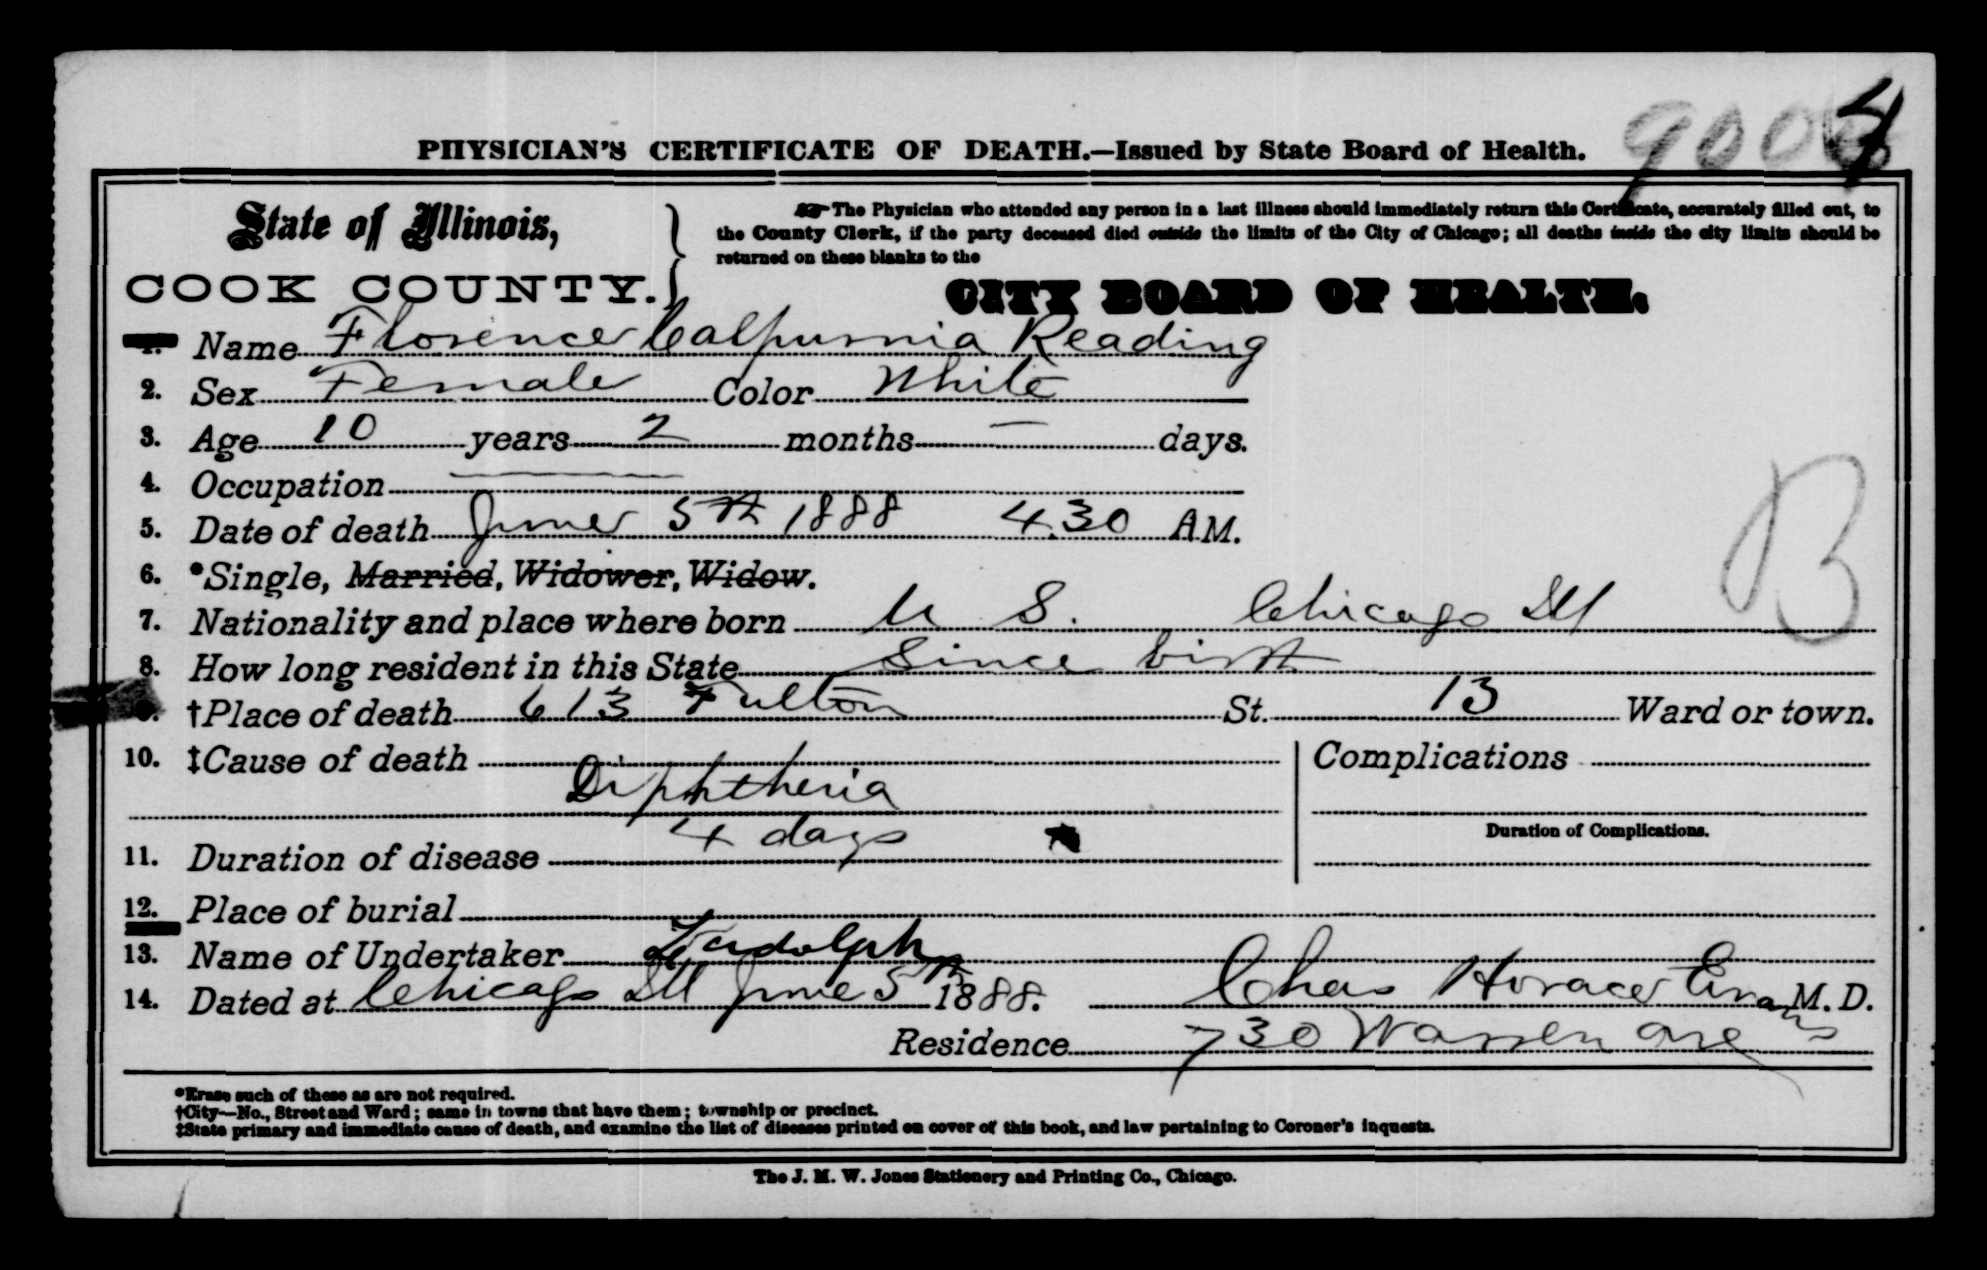 9004
PHYSICIAN'S CERTIFICATE OF DEATH.—Issued by State Board of Health.
State of Illinois,
COOK COUNTY.
☞ The Physician who attended any person in a last illness should immediately return this Certificate, accurately filled out, to
the County Clerk, if the party deceased died outside the limits of the City of Chicago; all deaths inside the city limits should be
returned on these blanks to the
CITY BOARD OF HEALTH.
1. Name Florence Calpurnia Reading
2. Sex Female Color White
3. Age 10 years 2 months — days.
4. Occupation
5. Date of death June 5th 1888 4.30 A M.
6. *Single, Married, Widower, Widow.
B
7. Nationality and place where born U S. Chicago Ill
8. How long resident in this State Since birth
†Place of death 613 Fulton St. 13 Ward or town.
10. ‡Cause of death Complications
Diphtheria
Duration of Complications.
11. Duration of disease 4 days
12. Place of burial
13. Name of Undertaker
14. Dated at Chicago Ill June 5th 1888. Chas Horace Evans M. D.
Residence 730 Warren ave
*Erase such of these as are not required.
†City—No., Street and Ward; same in towns that have them; township or precinct.
‡State primary and immediate cause of death, and examine the list of diseases printed on cover of this book, and law pertaining to Coroner's inquests.
The J. M. W. Jones Stationery and Printing Co., Chicago.